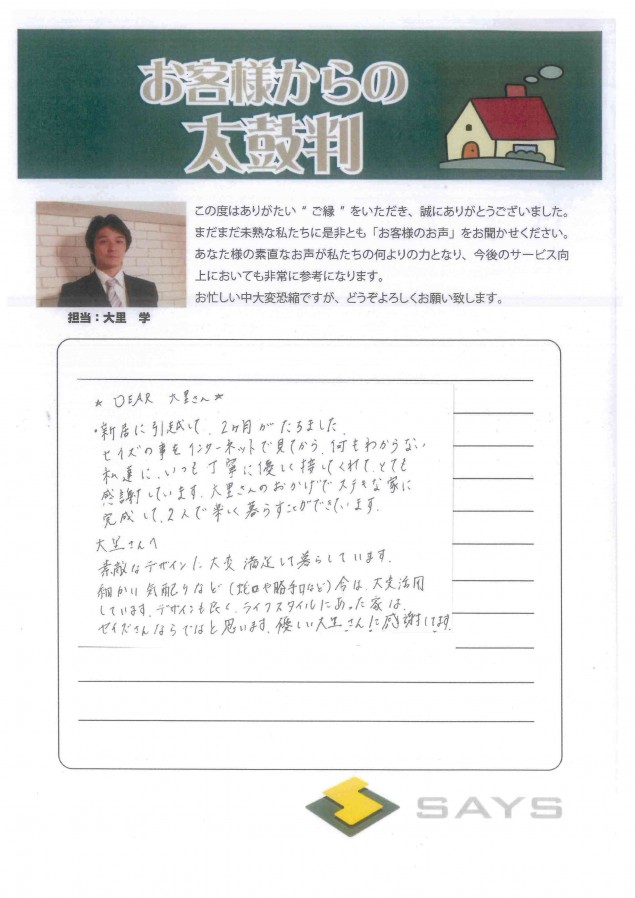 お客様からの
太鼓判
この度はありがたい“ご縁”をいただき、誠にありがとうございました。
まだまだ未熟な私たちに是非とも「お客様のお声」をお聞かせください。
あなた様の素直なお声が私たちの何よりの力となり、今後のサービス向
上においても非常に参考になります。
お忙しい中大変恐縮ですが、どうぞよろしくお願い致します。
担当：大里 学
★ DEAR 大里さん★
・新居に引越して、2ヶ月がたちました。
セイズの事をインターネットで見てから、何もわからない
私達に、いつも丁寧に優しく接してくれて、とても
感謝しています。大里さんのおかげでステキな家に
完成して、2人で楽しく暮らすことができています。
大里さんへ
素敵なデザインに大変満足して暮らしています。
細かい気配りなど（蛇口や勝手口など）今は、大変活用
しています。デザインも良く、ライフスタイルにあった家は、
セイズさんならではと思います。優しい大里さんに感謝してます
SAYS